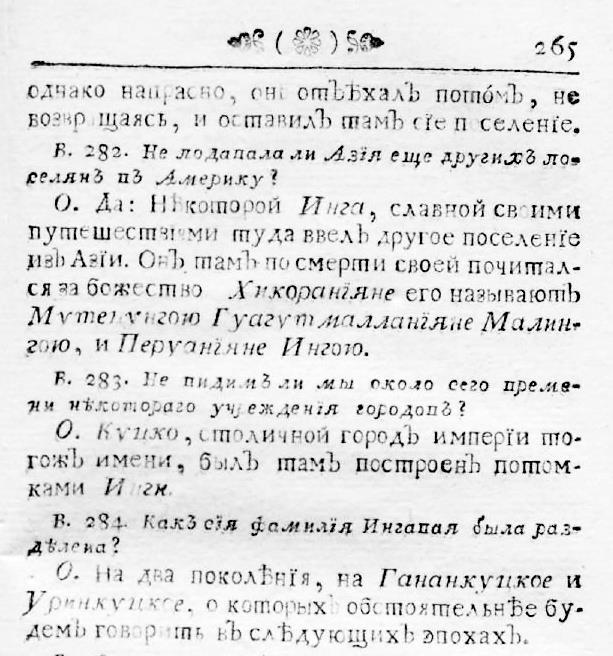 265
однако напрасно, онъ отъѣхалъ пото́мъ, не
возвращаясь, и оставилъ тамъ сїе поселенїе.
В. 282. Не подавала ли Азїя еще другихъ по-
селянъ въ Америку?
О. Да: Нѣкоторой Инга, славной своими
путешествїями туда ввелъ другое поселенїе
изъ Азїи. Онъ тамъ по смерти своей почитал-
ся за божество Хикорангїяне его называютъ
Мутенунгою Гуагутмаллангїяне Малин-
гою, и Перуангїяне Ингою.
В. 283. Не видимъ ли мы около сего време-
ни нѣкотораго учрежденїя городовъ?
О. Куцко, столичной городъ имперїи то-
гожъ имени, былъ тамъ построенъ потом-
ками Инги.
В. 284. Какъ сїя фамилїя Ингавая была раз-
дѣлена?
О. На два поколѣнїя, на Гананкуцкое и
Уринкуцкое, о которыхъ обстоятельнѣе бу-
демъ говорить въ слѣдующихъ эпохахъ.